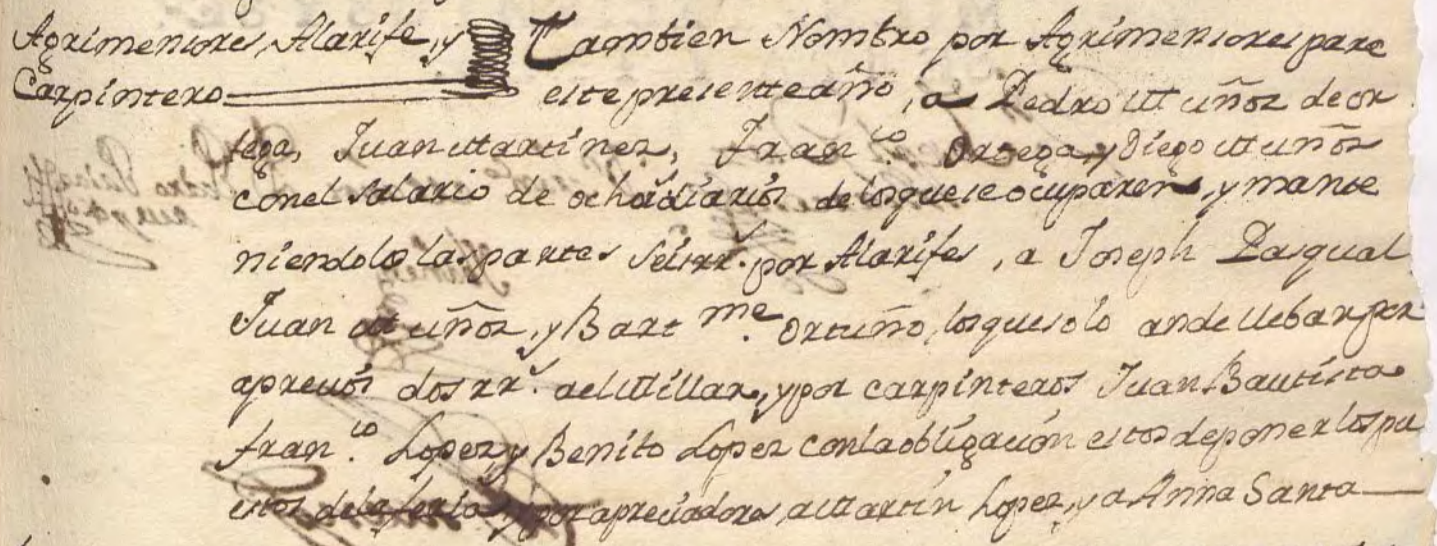 Agrimensores, Alarife, y
Carpintero
Tambien Nombro por Agrimensores para
este presente año, a Pedro Muñoz de or
tega, Juan Martinez, Fran.co Ortega, y Diego Muñoz
con el salario de ocho diarios de los que se ocuparen, y mante
niendolos las partes seis rr.s por Alarifes, a Joseph Pasqual
Juan Muñoz, y Bart.me Ortuño, los que solo an de llebar por
aprecios dos rr.s al Millar, y por carpinteros Juan Bautista
fran.co Lopez, y Benito Lopez con la obligacion estos de poner los pu
estos de la feria, y por apreciadores, a Martin Lopez, y a Anna Santa